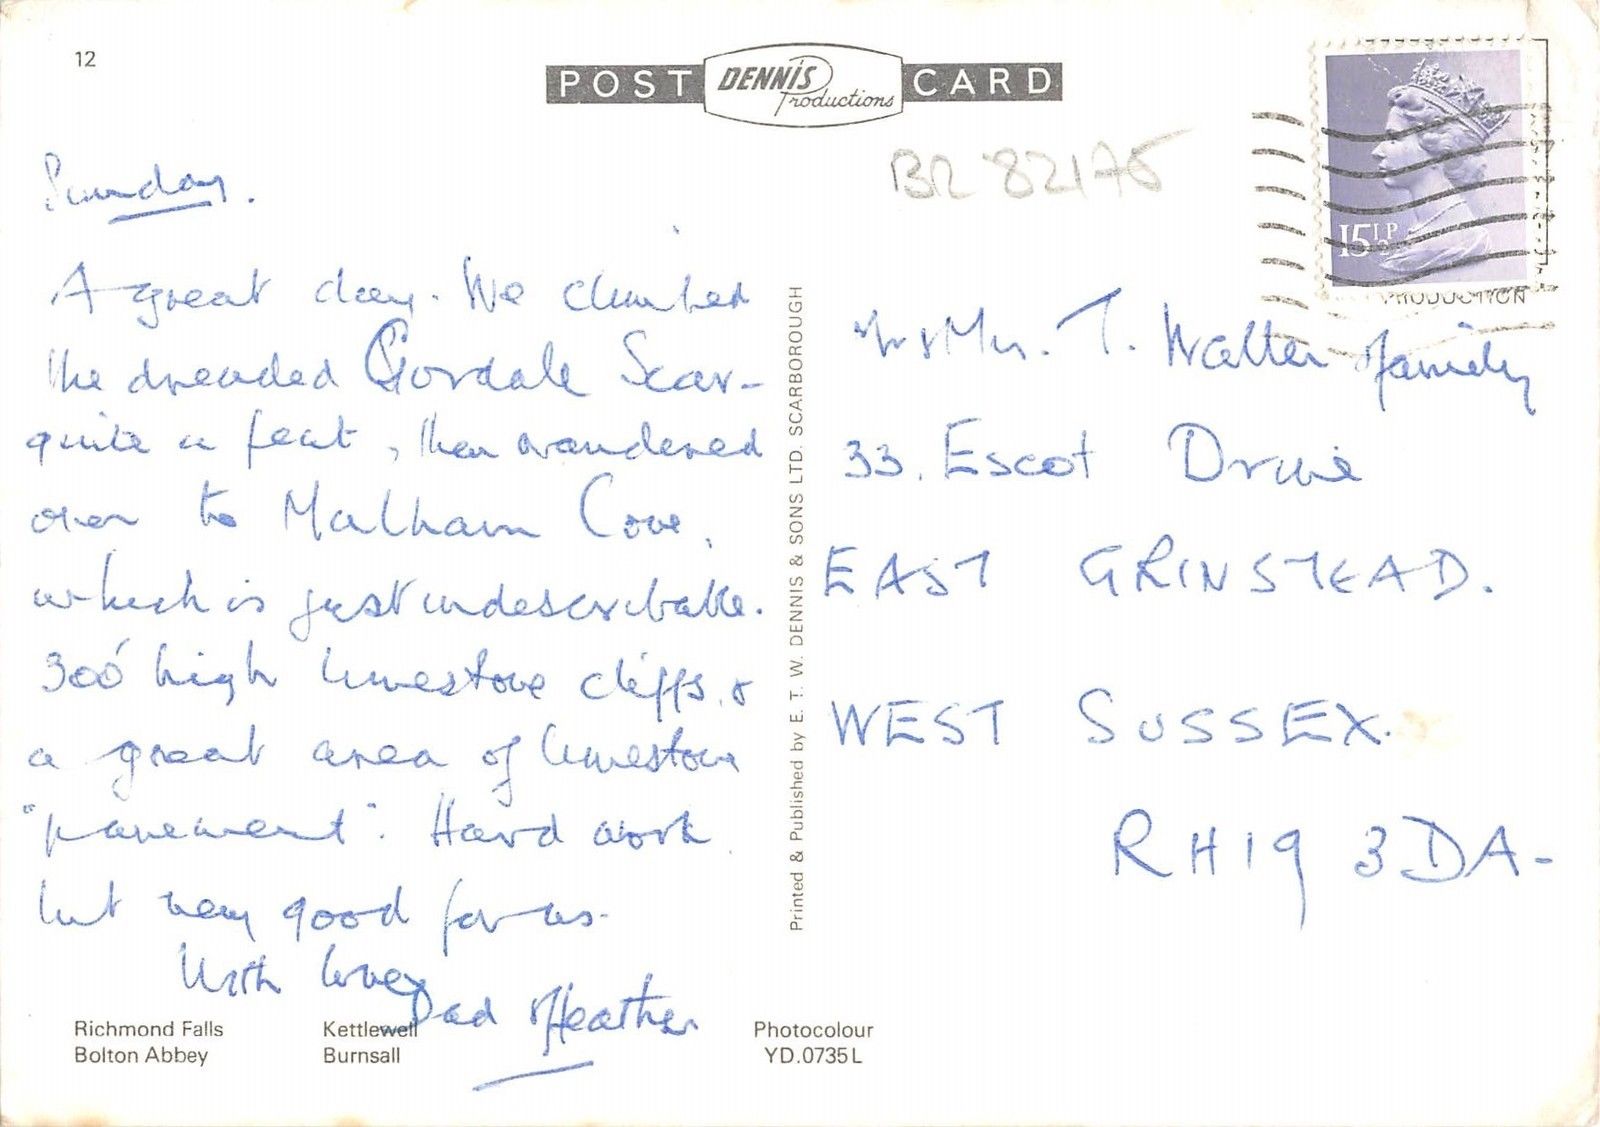 12
POST DENNIS Productions CARD
BR 82175
15½P
PRODUCTION
Sunday.
A great day. We climbed
the dreaded Gordale Scar-
quite a feat, then wandered
over to Malham Cove,
which is just indescribable.
300' high limestone cliffs, &
a great area of limestone
"pavement". Hard work
but very good for us.
With love,
Dad & Heather
Mr & Mrs. T. Walter & family
33, Escot Drive
EAST GRINSTEAD.
WEST SUSSEX.
RH19 3DA-
Printed & Published by E. T. W. DENNIS & SONS LTD. SCARBOROUGH
Richmond Falls Kettlewell Photocolour
Bolton Abbey Burnsall YD.0735L